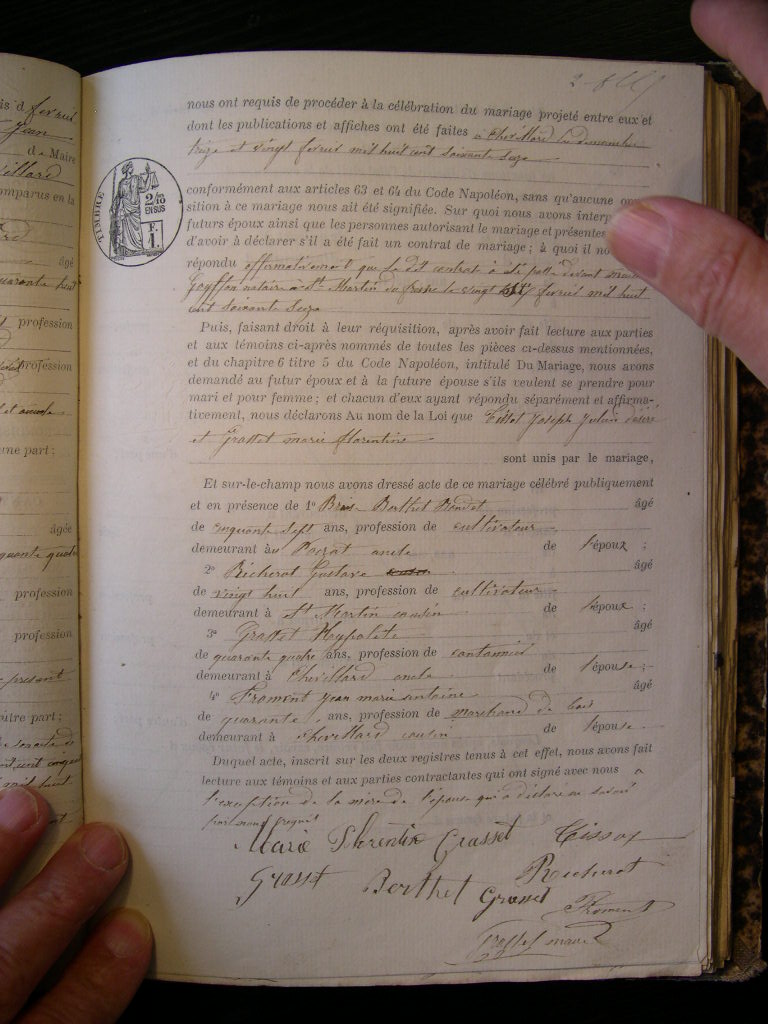 nous ont requis de procéder à la célébration du mariage projeté entre eux et
dont les publications et affiches ont été faites à Chevillard les dimanches
treize et vingt fevrier mil huit cent soixante seize
conformément aux articles 63 et 64 du Code Napoléon, sans qu'aucune
sition à ce mariage nous ait été signifiée. Sur quoi nous avons
futurs époux ainsi que les personnes autorisant le mariage et présentes
d'avoir à déclarer s'il a été fait un contrat de mariage ; à quoi il
répondu affirmativement que le dit contrat à été passé devant
Goyffon notaire à St Martin du fresne le vingt fevrier mil huit
cent soixante seize
Puis, faisant droit à leur réquisition, après avoir fait lecture aux parties
et aux témoins ci-après nommés de toutes les pièces ci-dessus mentionnées,
et du chapitre 6 titre 5 du Code Napoléon, intitulé Du Mariage, nous avons
demandé au futur époux et à la future épouse s'ils veulent se prendre pour
mari et pour femme ; et chacun d'eux ayant répondu séparément et affirma-
tivement, nous déclarons Au nom de la Loi que Tissot Joseph Julien désiré
et Grasset marie florentine
sont unis par le mariage,
Et sur-le-champ nous avons dressé acte de ce mariage célébré publiquement
et en présence de 1º Berthet âgé
de cinquante sept ans, profession de cultivateur
demeurant à oncle de l'époux ;
2º Richerot Gustave âgé
de vingt huit ans, profession de cultivateur
demeurant à St Martin cousin de l'époux ;
3º Grasset Hyppolite âgé
de quarante quatre ans, profession de cantonnier
demeurant à Chevillard oncle de l'épouse ;
4º Froment Jean marie antoine âgé
de quarante ans, profession de marchand de bois
demeurant à Chevillard cousin de l'épouse
Duquel acte, inscrit sur les deux registres tenus à cet effet, nous avons fait
lecture aux témoins et aux parties contractantes qui ont signé avec nous a
l'exception de la mère de l'épouse qui a déclaré ne savoir
Marie Florentine Grasset Tissot
Grasset Berthet Grasset Richerot
Froment
Grasset maire
TIMBRE
2/10
EN SUS
F.
1.
is d fevrier
Jean
de Maire
villard
omparus en la
âgé
quarante huit
profession
profession
et oncle
une part ;
âgée
quante quatre
profession
profession
present
utre part ;